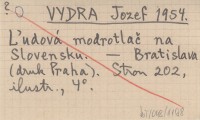 ?
VYDRA Jozef 1954.
Ľudová modrotlač na
Slovensku. — Bratislava
(druk Praha). Stron 202,
ilustr., 4°.